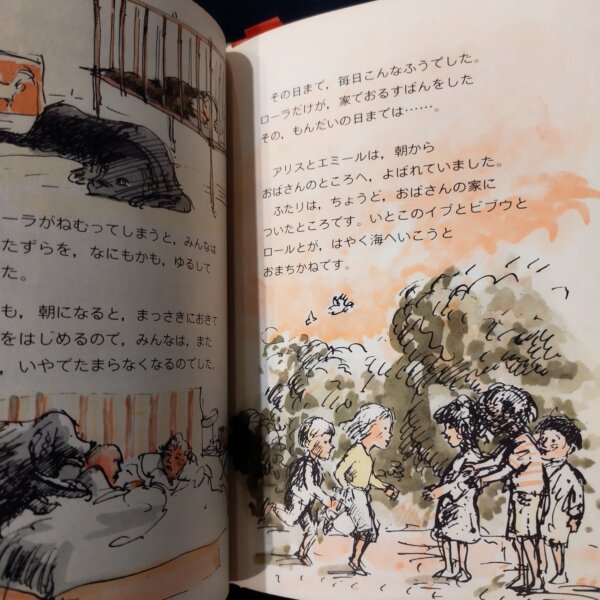 ーラがねむってしまうと，みんなは
たずらを，なにもかも，ゆるして
た。
も，朝になると，まっさきにおきて
をはじめるので，みんなは，また
，いやでたまらなくなるのでした。
その日まで，毎日こんなふうでした。
ローラだけが，家でおるすばんをした
その，もんだいの日までは……。
アリスとエミールは，朝から
おばさんのところへ，よばれていました。
ふたりは，ちょうど，おばさんの家に
ついたところです。いとこのイブとビブウと
ロールとが，はやく海へいこうと
おまちかねです。